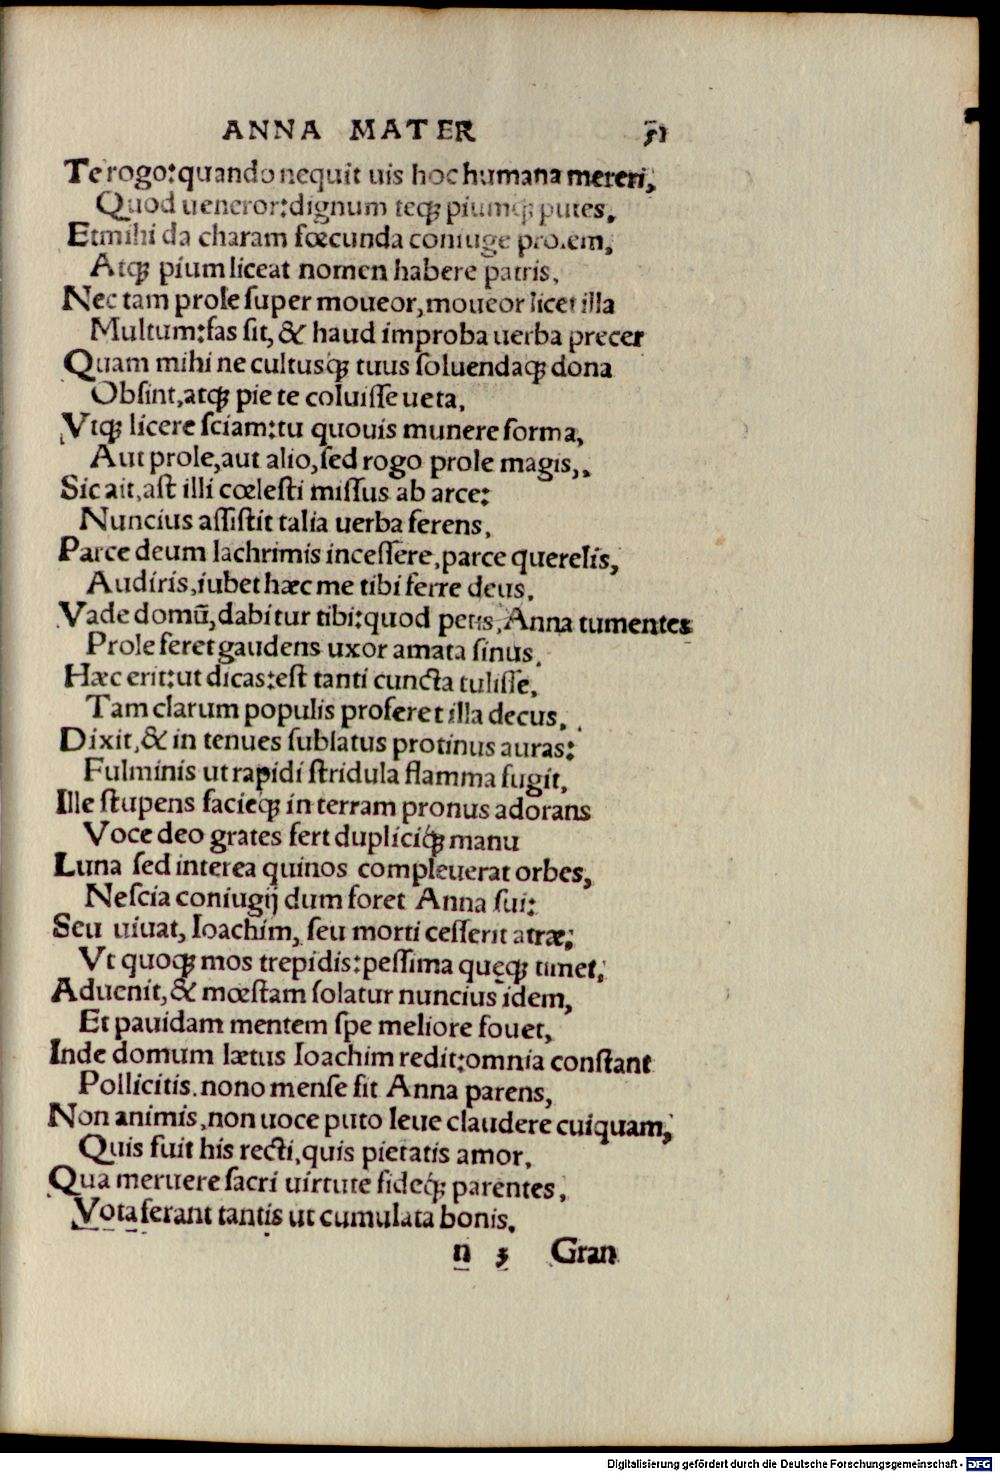 ANNA MATER 51
Te rogo: quando nequit uis hoc humana mereri,
Quod ueneror: dignum teqꝫ piumqꝫ putes,
Et mihi da charam fœcunda coniuge prolem,
Atqꝫ pium liceat nomen habere patris,
Nec tam prole super moueor, moueor licet illa
Multum: fas sit, & haud improba uerba precer
Quam mihi ne cultusqꝫ tuus soluendaqꝫ dona
Obsint, atqꝫ pie te coluisse ueta,
Vtqꝫ licere sciam: tu quouis munere forma,
Aut prole, aut alio, sed rogo prole magis,
Sic ait, ast illi cœlesti missus ab arce:
Nuncius assistit talia uerba ferens,
Parce deum lachrimis incessere, parce querelis,
Audiris, iubet hæc me tibi ferre deus.
Vade domū, dabitur tibi: quod petis, Anna tumentes
Prole feret gaudens uxor amata sinus.
Hæc erit: ut dicas: est tanti cuncta tulisse,
Tam clarum populis proferet illa decus,
Dixit, & in tenues sublatus protinus auras:
Fulminis ut rapidi stridula flamma fugit,
Ille stupens facieqꝫ in terram pronus adorans
Voce deo grates fert dupliciqꝫ manu
Luna sed interea quinos compleuerat orbes,
Nescia coniugij dum foret Anna sui:
Seu uiuat, Ioachim, seu morti cesserit atræ;
Vt quoqꝫ mos trepidis: pessima quęqꝫ timet,
Aduenit, & mœstam solatur nuncius idem,
Et pauidam mentem spe meliore fouet,
Inde domum lætus Ioachim redit: omnia constant
Pollicitis. nono mense fit Anna parens,
Non animis, non uoce puto leue claudere cuiquam,
Quis fuit his recti, quis pietatis amor.
Qua meruere sacri uirtute fideqꝫ parentes,
Vota ferant tantis ut cumulata bonis.
n 3 Gran
Digitalisierung gefördert durch die Deutsche Forschungsgemeinschaft - DFG